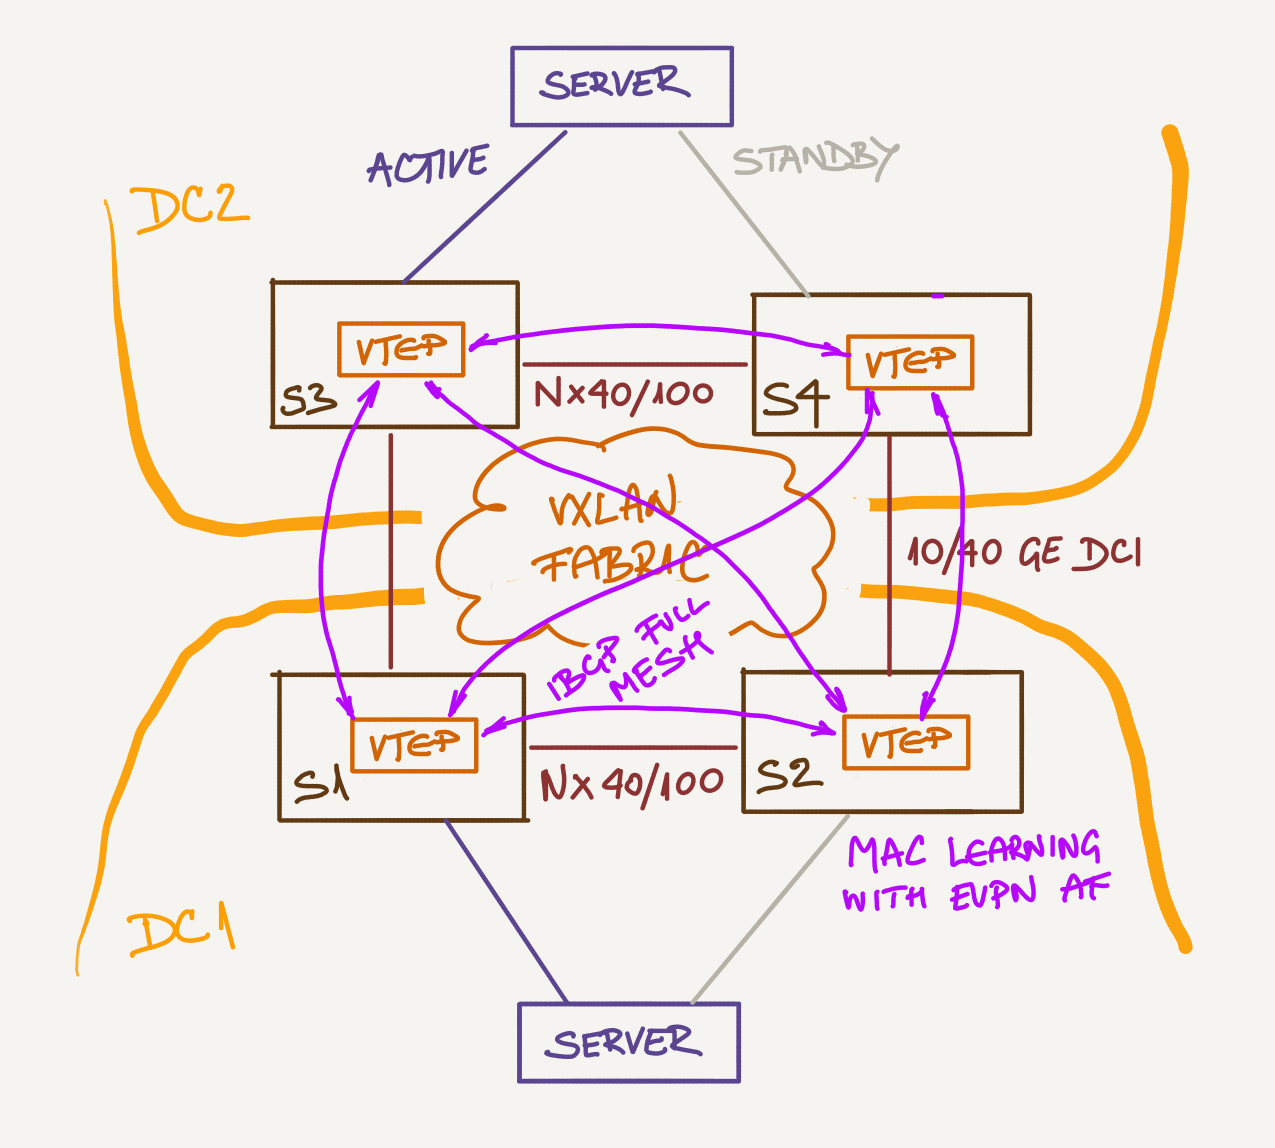 SERVER
ACTIVE
STANDBY
DC2
VTEP
S3
N×40/100
VTEP
S4
VXLAN
FABRIC
10/40 GE DCI
IBGP FULL
MESH
VTEP
S1
N× 40/100
VTEP
S2
MAC LEARNING
WITH EVPN AF
DC1
SERVER